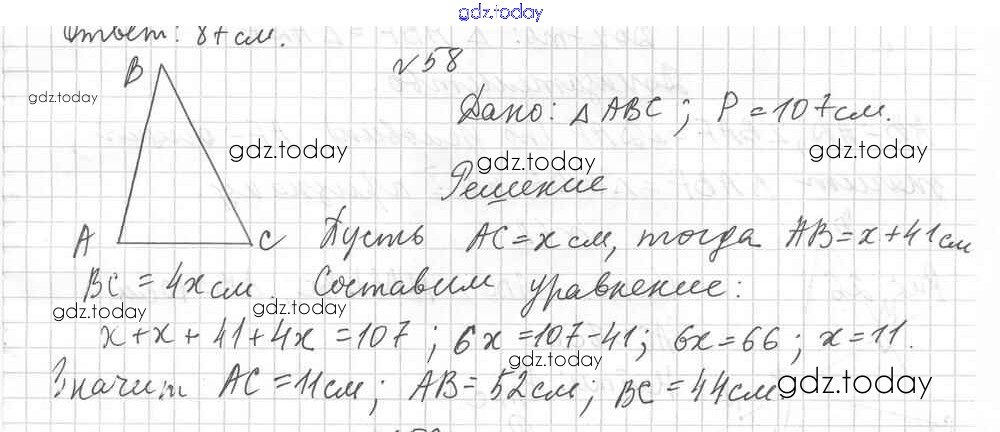 gdz.today
Ответ: 87 см.
B
№58
gdz.today
Дано: △ABC; P = 107 см.
gdz.today
gdz.today
gdz.today
Решение
A
C
Пусть AC = x см, тогда AB = x + 41 см
BC = 4x см. Составим уравнение:
gdz.today
gdz.today
x + x + 41 + 4x = 107; 6x = 107 - 41; 6x = 66; x = 11.
gdz.today
Значит AC = 11 см; AB = 52 см; BC = 44 см.
gdz.today